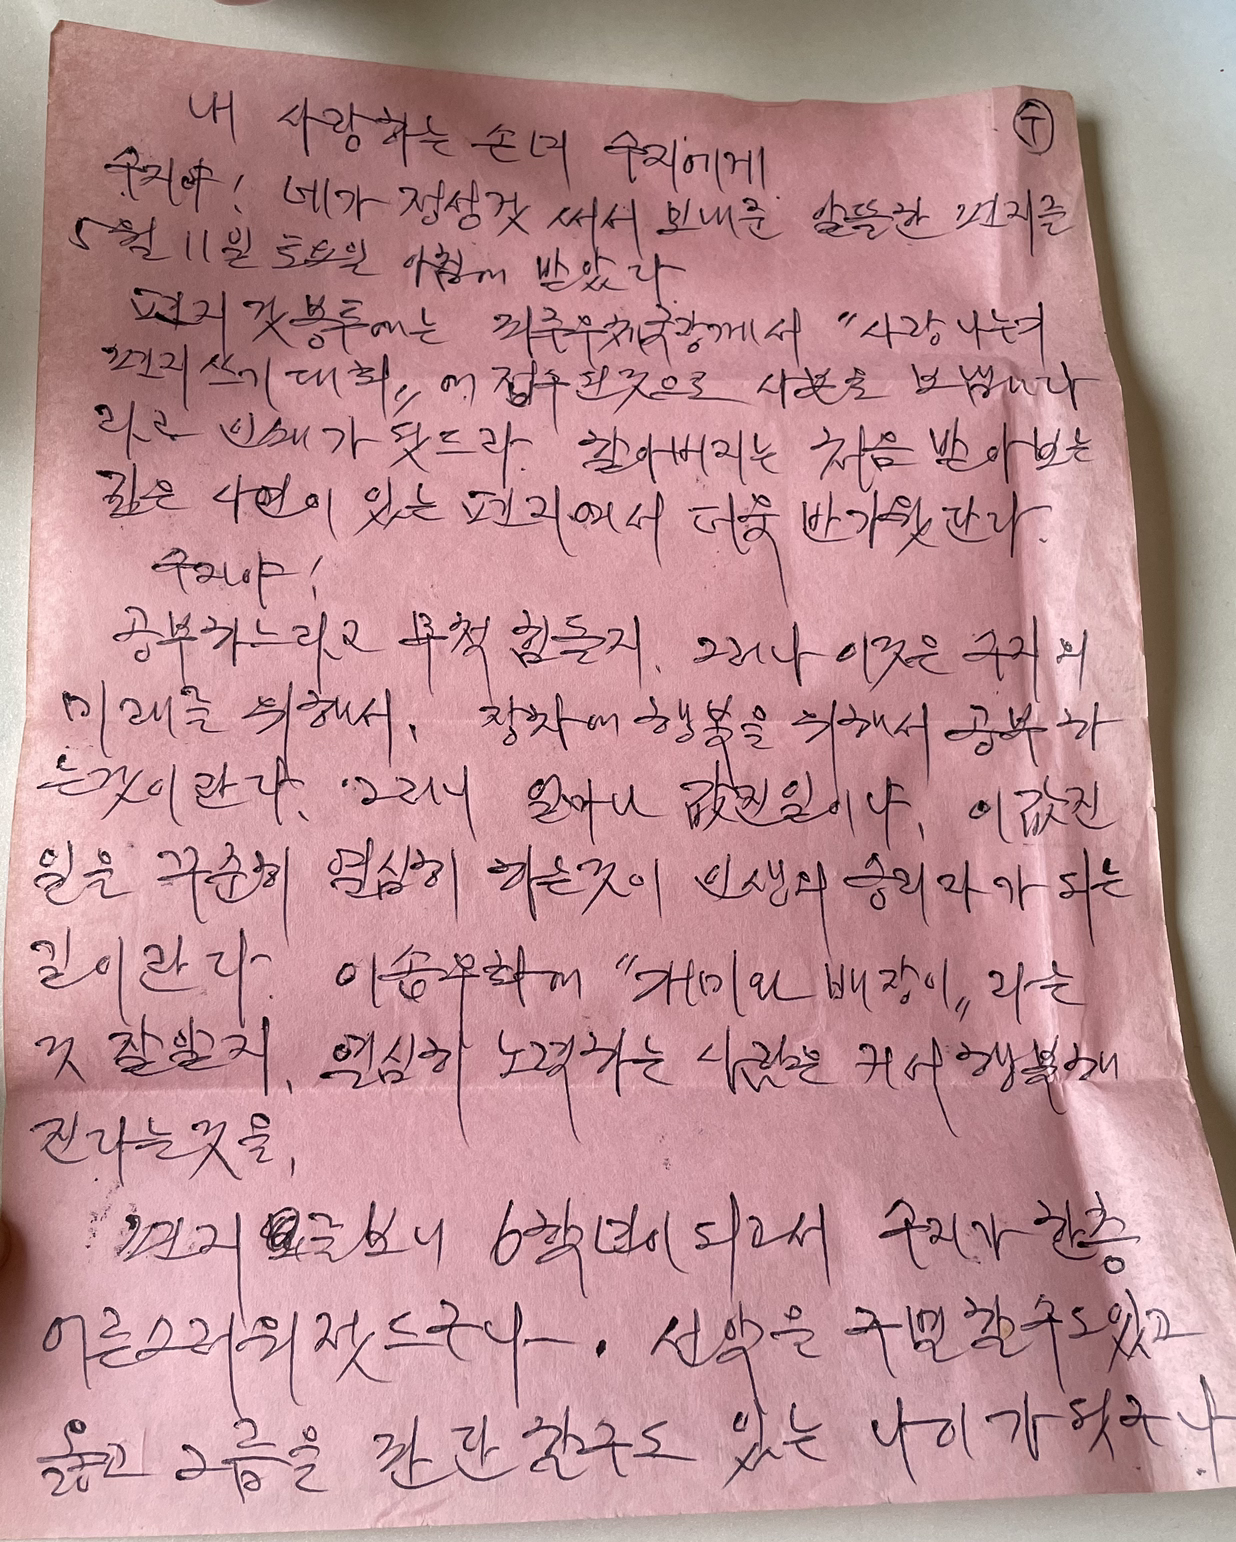 내 사랑하는 손녀 수지에게
수지야! 네가 정성껏 써서 보내준 알뜰한 편지를
5월 11일 토요일 아침에 받았다
편지 겉봉투에는 우체국장께서 "사랑나누기
편지쓰기대회"에 접수된것으로 사본을 보냅니다
라고 인쇄가 됫드라. 할아버지는 처음 받아보는
깊은 사연이 있는 편지에서 더욱 반가웟단다.
수지야!
공부하느라고 무척 힘들지. 그러나 이것은 수지의
미래를 위해서, 장차에 행복을 위해서 공부하
는것이란다. 그러니 얼마나 값진일이냐, 이값진
일을 꾸준히 열심히 하는것이 인생의 승리자가 되는
길이란다. 이솝우화에 "개미와 배짱이"라는
것 잘알지, 열심히 노력하는 사람은 커서 행복해
진다는것을,
편지 글보니 6학년이 되고서 수지가 한층
어른스러워젓드구나. 선악을 구별할수도있고
옳고 그름을 판단할수도 있는 나이가 되엇구나